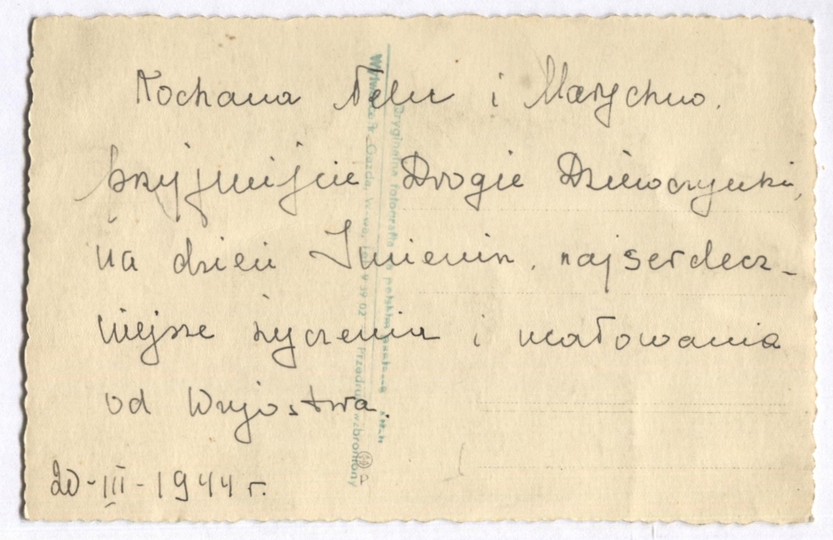 Kochana Felu i Marychno.
przyjmijcie Drogie Dziewczynki,
na dzień Imienin, najserdecz-
niejsze życzenia i ucałowania
od Wujostwa.
20-III-1944 r.
Oryginalna fotografia
Przedruk wzbroniony